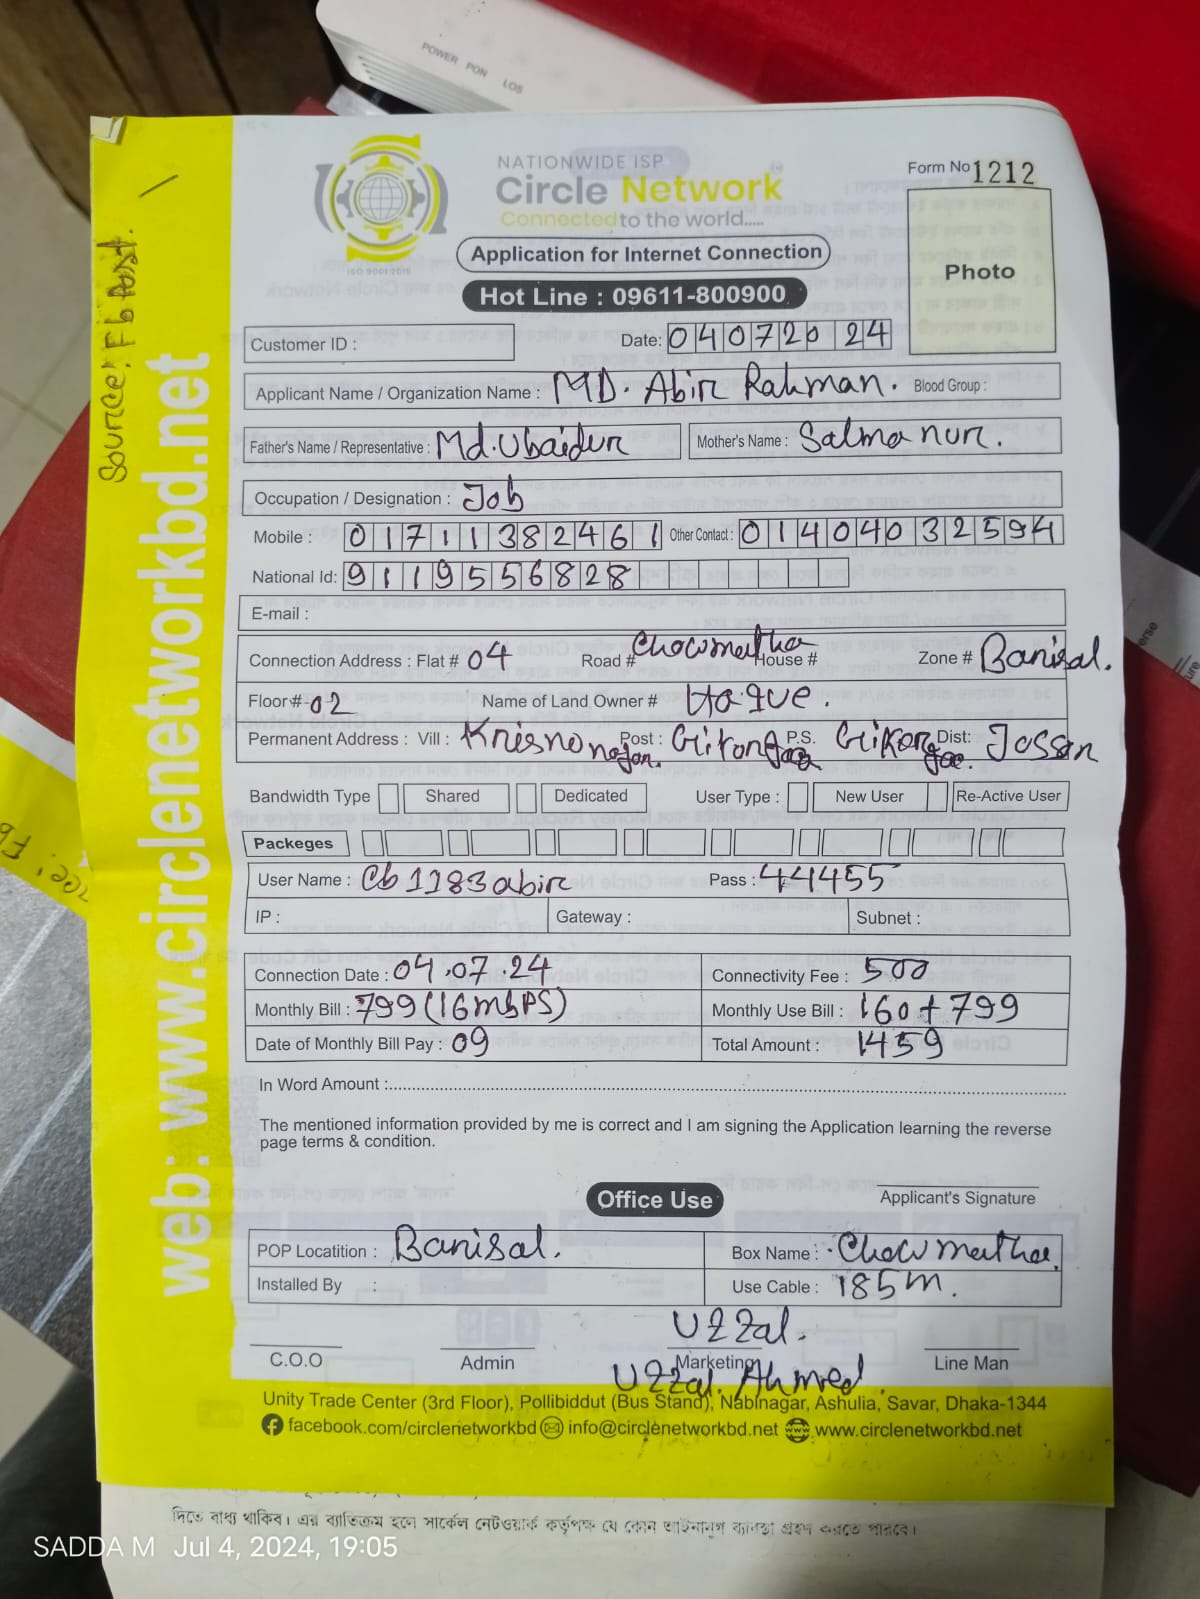 POWER PON LOS
NATIONWIDE ISP
Circle Network
Connected to the world.....
ISO 9001:2015
Form No 1212
Photo
Application for Internet Connection
Hot Line : 09611-800900
Source: Fb Post.
web: www.circlenetworkbd.net
Customer ID :
Date: 04072024
Applicant Name / Organization Name : MD. Abir Rahman. Blood Group :
Father's Name / Representative : Md. Ubaidur Mother's Name : Salma nur.
Occupation / Designation : Job
Mobile : 01711382461 Other Contact : 01404032594
National Id: 9119556828
E-mail :
Connection Address : Flat # 04 Road # Chowmatha House # Zone # Barisal.
Floor # 02 Name of Land Owner # Haque.
Permanent Address : Vill : Post : P.S. Dist:
Bandwidth Type Shared Dedicated User Type : New User Re-Active User
Packeges
User Name : cb1183abir Pass : 44455
IP : Gateway : Subnet :
Connection Date : 04.07.24 Connectivity Fee : 500
Monthly Bill : 799 (16mbPS) Monthly Use Bill : 160+799
Date of Monthly Bill Pay : 09 Total Amount : 1459
In Word Amount :
The mentioned information provided by me is correct and I am signing the Application learning the reverse
page terms & condition.
Applicant's Signature
Office Use
POP Locatition : Barisal. Box Name : Chowmatha.
Installed By : Use Cable : 185m.
Uzzal.
C.O.O Admin Marketing Line Man
Uzzal. Ahmed.
Unity Trade Center (3rd Floor), Pollibiddut (Bus Stand), Nabinagar, Ashulia, Savar, Dhaka-1344
facebook.com/circlenetworkbd info@circlenetworkbd.net www.circlenetworkbd.net
দিতে বাধ্য থাকিব। এর ব্যতিক্রম হলে সার্কেল নেটওয়ার্ক কর্তৃপক্ষ যে কোন আইনানুগ ব্যবস্থা গ্রহণ করতে পারবে।
SADDA M Jul 4, 2024, 19:05